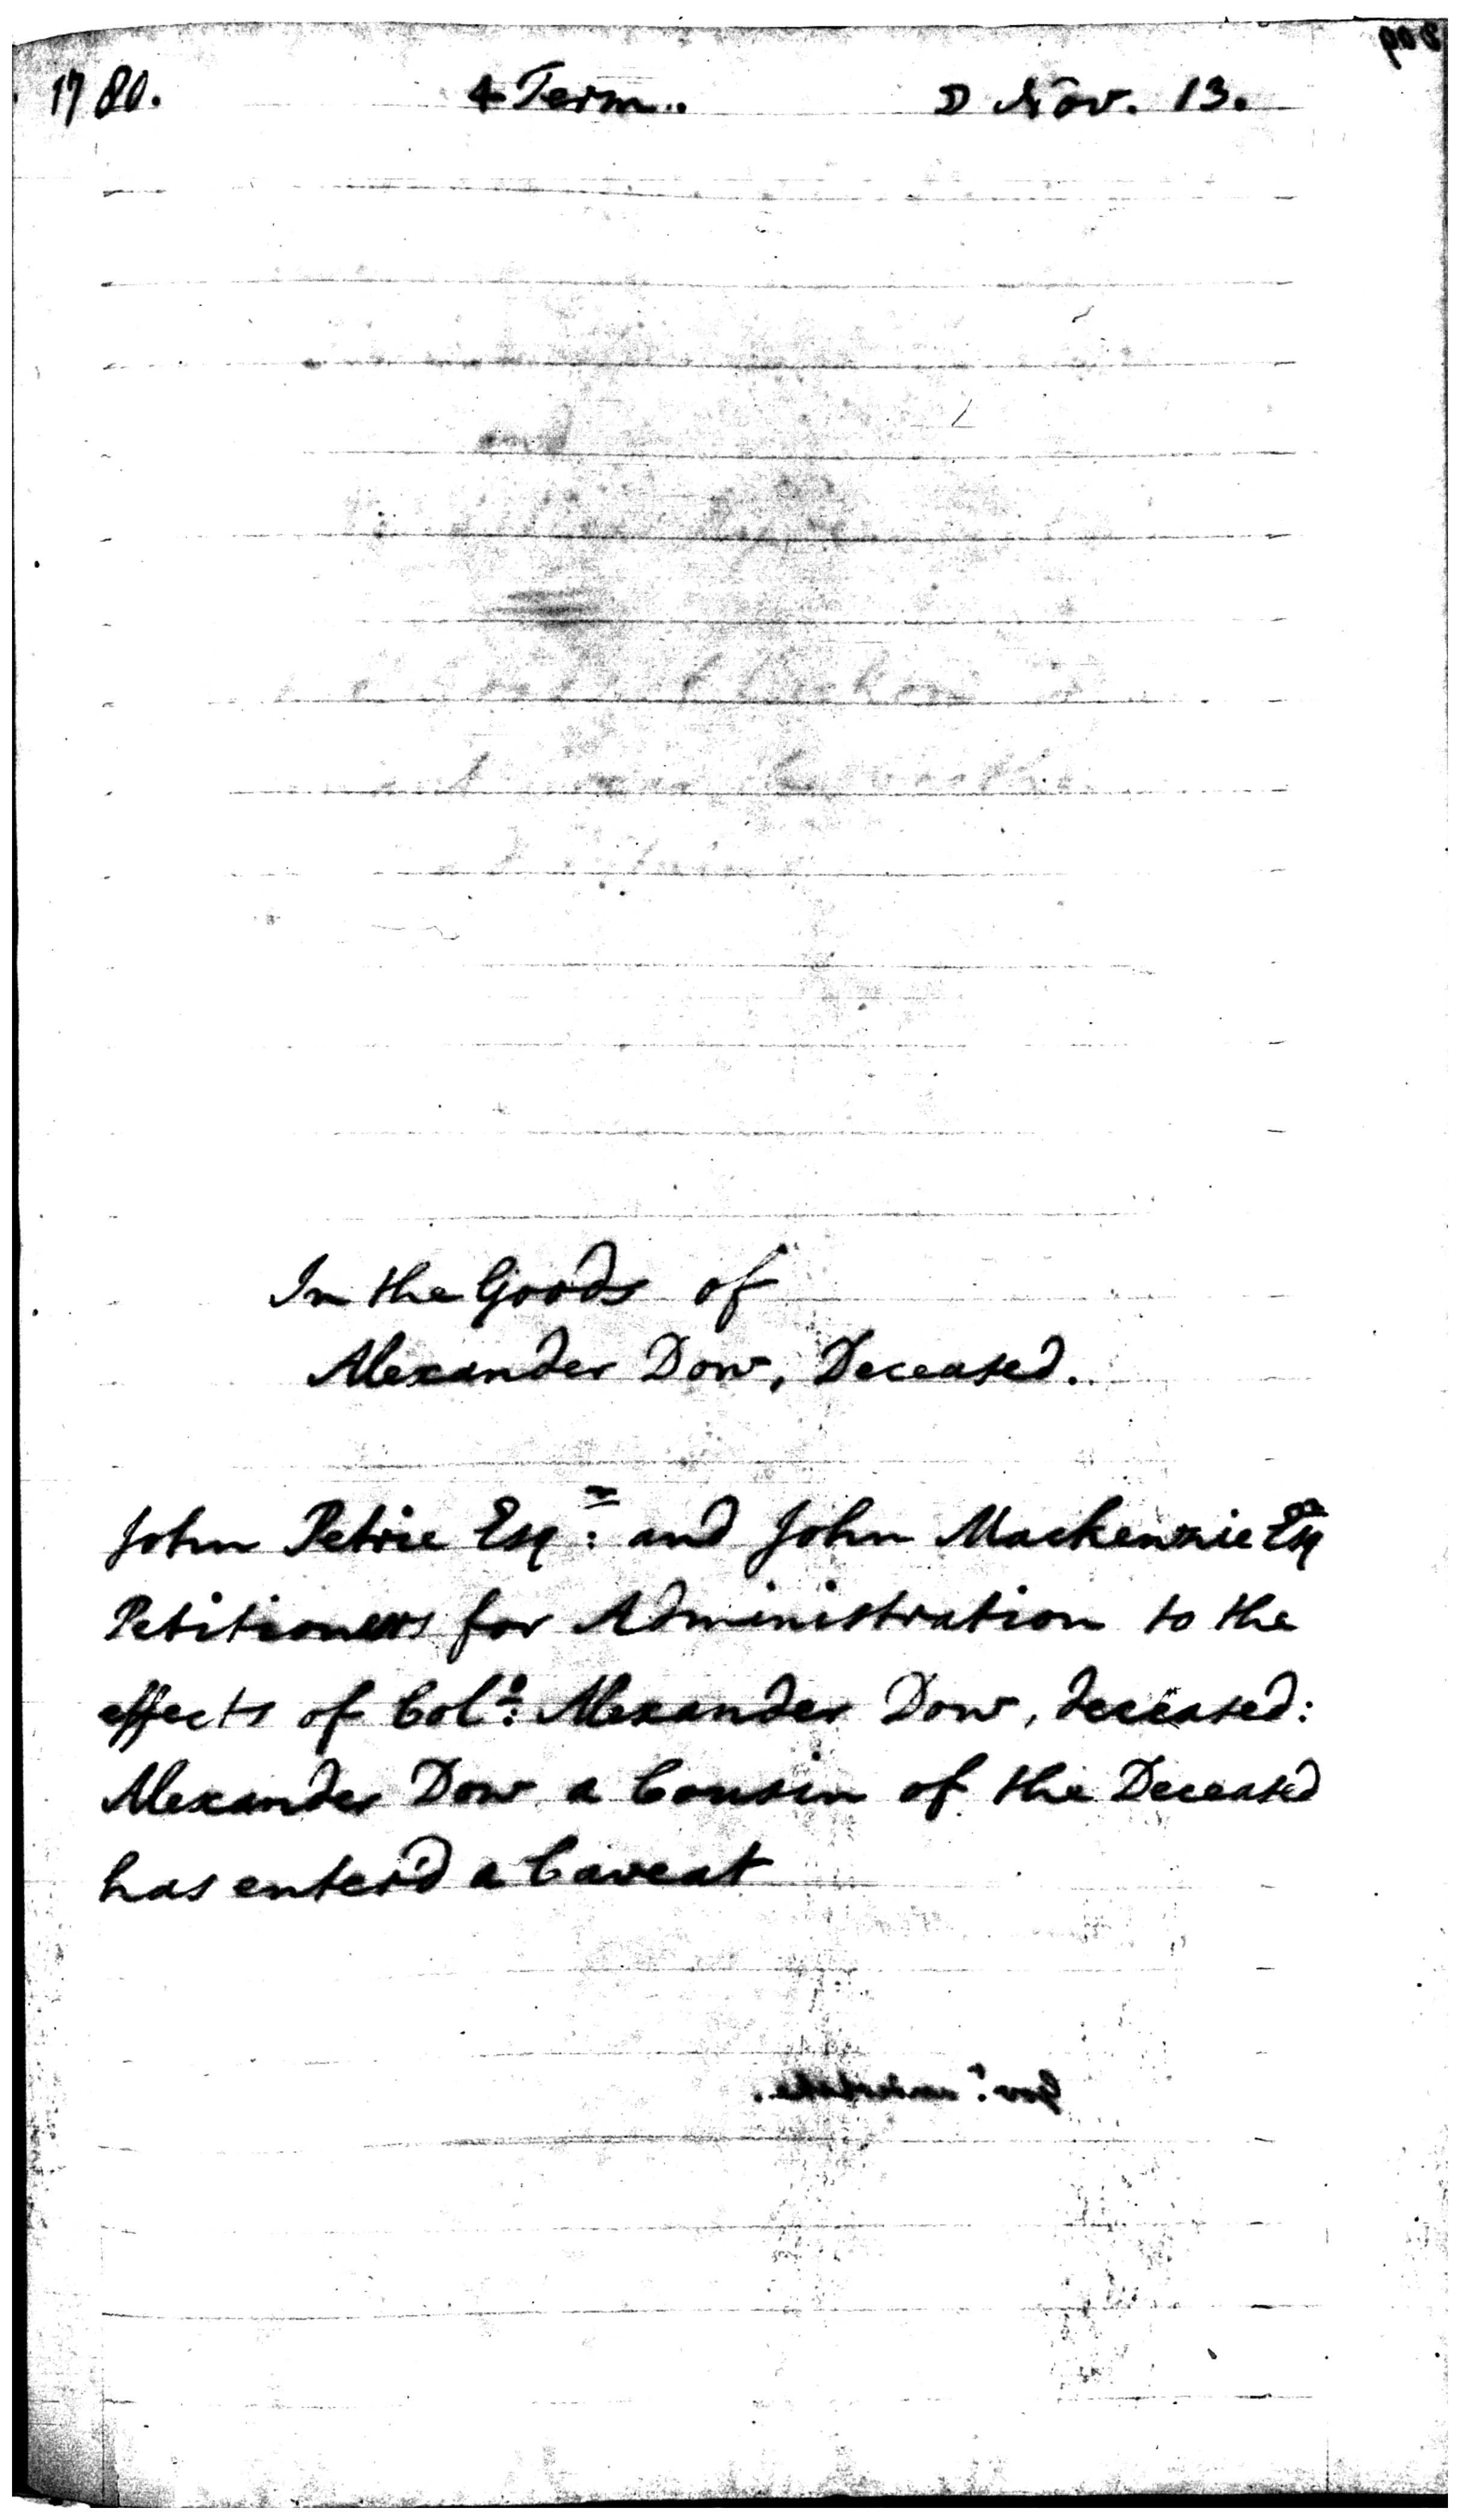 1780. 4 Term. ☽ Nov. 13.
In the Goods of
Alexander Dow, Deceased.
John Petrie Esqr: and John Mackenzie Esqr
Petitioners for Administration to the
effects of Colo: Alexander Dow, deceased:
Alexander Dow a Cousin of the Deceased
has enter'd a Caveat